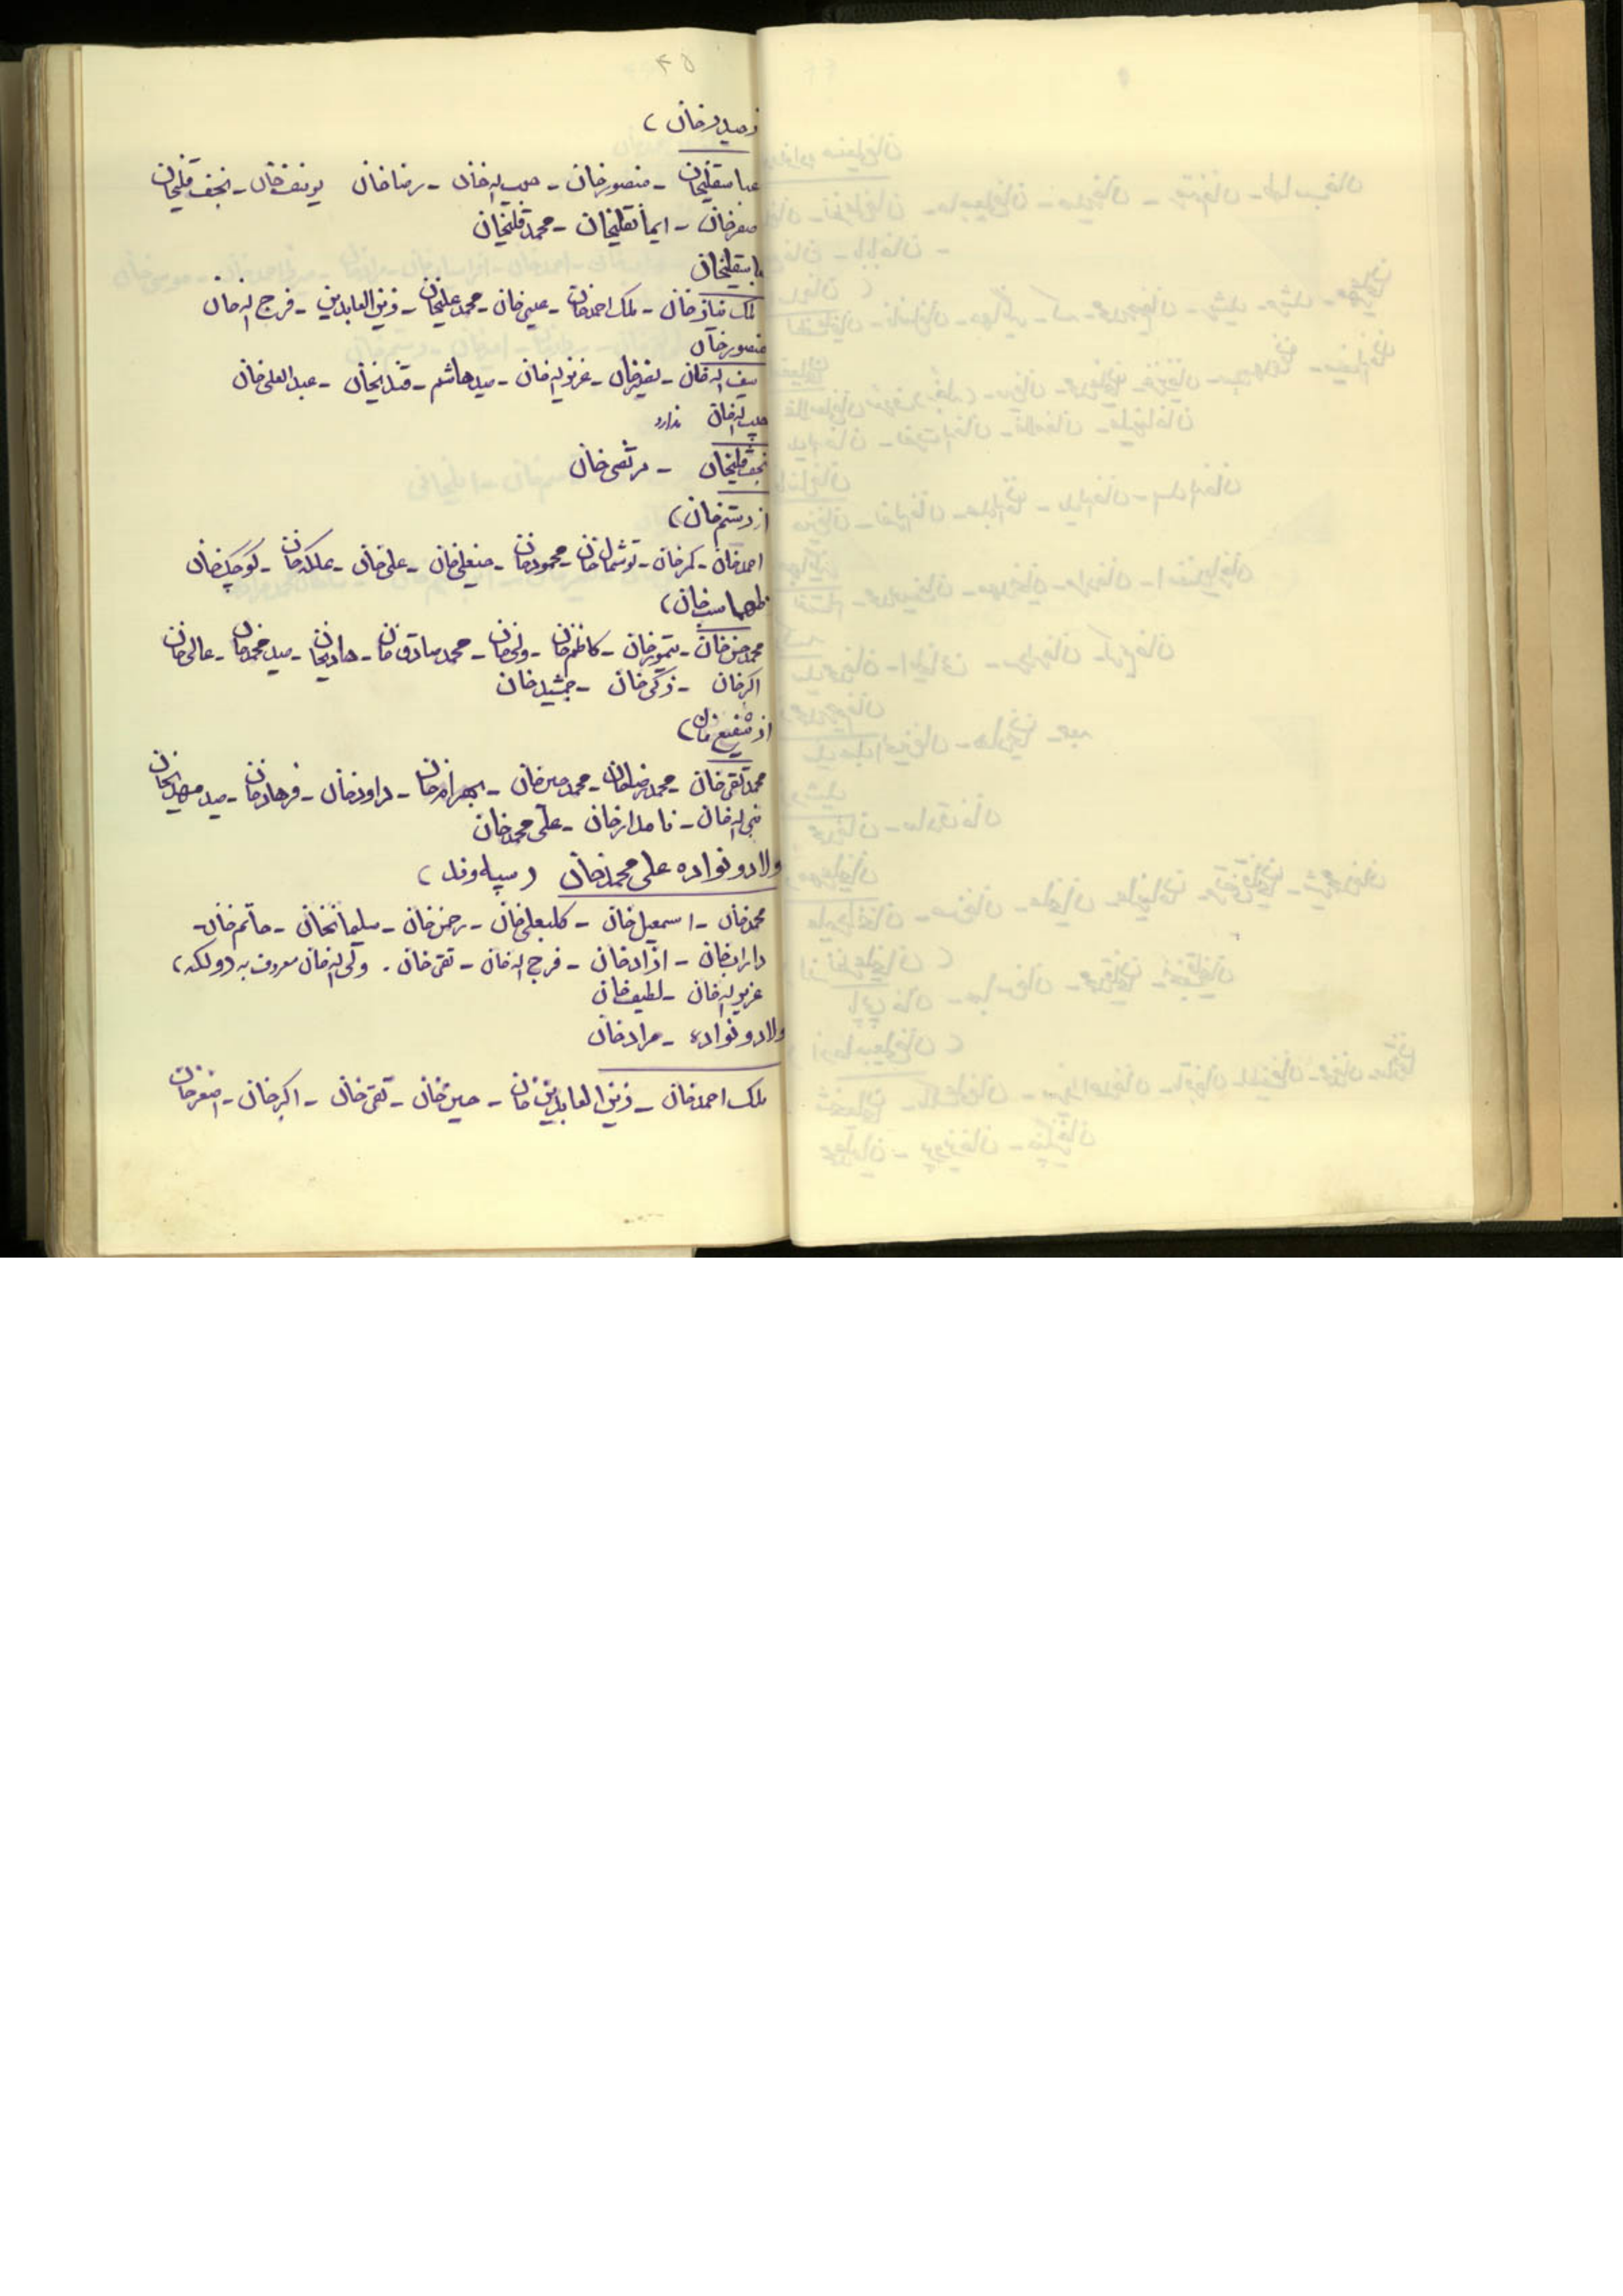 ۴۵
صیدرخان)
عباسقلیخان - منصورخان - حبیب اله خان - رضاخان یوسف خان - نجف قلیخان
صفرخان - ایمانقلیخان - محمد قلیخان
باسقلیخان
ملک نیازخان - ملک احمدخان - عیسی خان - محمد علیخان - زین العابدین - فرج اله خان
منصورخان
سیف اله خان - نصیرخان - عزیز اله خان - سید هاشم - قندیخان - عبدالعلی خان
حبیب اله خان ندارد
نجفقلیخان - مرتضی خان
از رستم خان)
احمدخان - کمرخان - توشمال خان - محمودخان - صیفعلی خان - علی خان - علمکه خان - کوچک خان
طهماسب خان)
محمد حسن خان - تیمورخان - کاظم خان - ولی خان - محمد صادق خان - هادیخان - صید محمدخان - عالی خان
اکبرخان - زکی خان - جمشید خان
از شفیع خان)
محمد تقی خان - محمد رضاخان - محمد حسین خان - بهرام خان - داودخان - فرهادخان - سید مهدیخان
نبی اله خان - نامدارخان - علی محمد خان
ولاد و نواده علی محمدخان (سپله وند)
محمدخان - اسمعیل خان - کلبعلی خان - رحمن خان - سلیمانخان - حاتم خان -
دارابخان - ازادخان - فرج اله خان - تقی خان . ولی اله خان معروف به دولکه)
عزیز اله خان - لطیف خان
ولاد و نواده - مرادخان
ملک احمدخان - زین العابدین خان - حسین خان - تقی خان - اکبرخان - اصغرخان